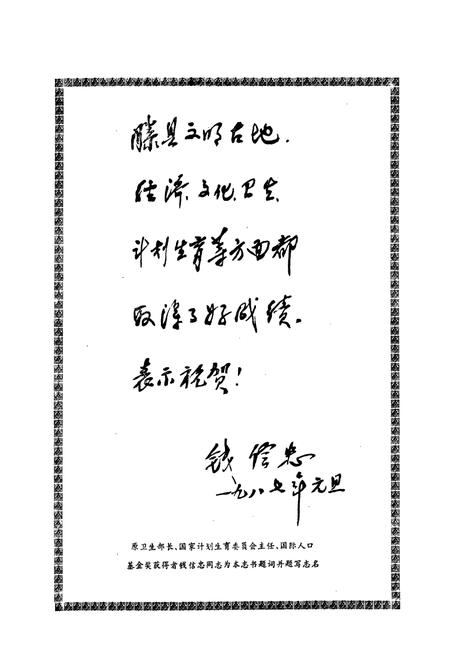 滕县文明古地.
经济、文化、卫生、
计划生育等方面都
取得了好成绩。
表示祝贺！
钱信忠
一九八七年元旦
原卫生部长、国家计划生育委员会主任、国际人口
基金奖获得者钱信忠同志为本志书题词并题写志名